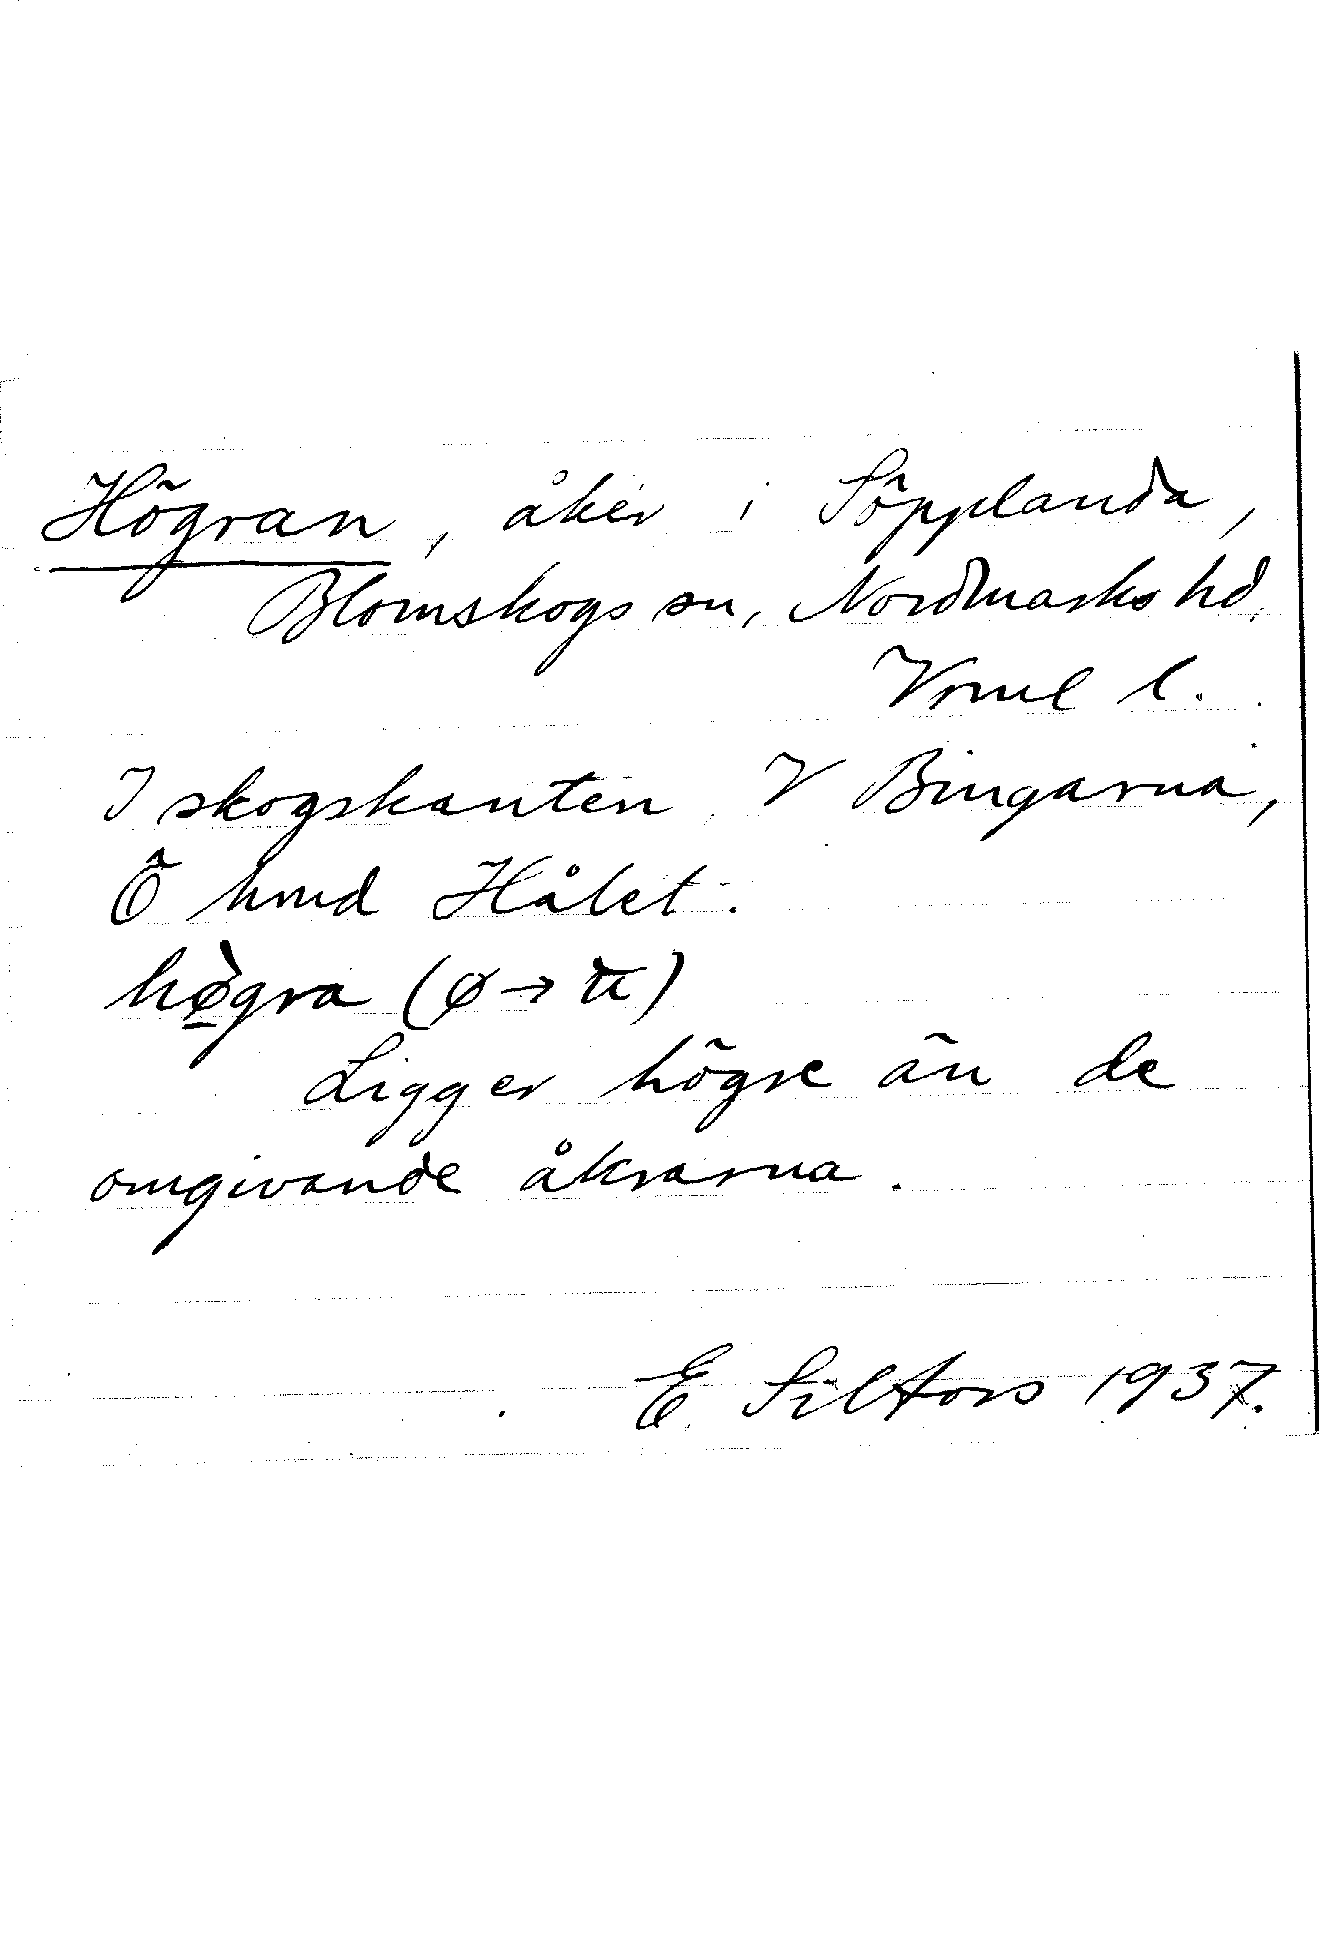 Högran, åker i Söpplanda,
Blomskogs sn, Nordmarks hd
Vrml l.
I skogskanten V Bingarna,
Ö hmd Hålet.
hø̀gra (ø→
Ligger högre än de
omgivande åkrarna.
E Silfors 1937.